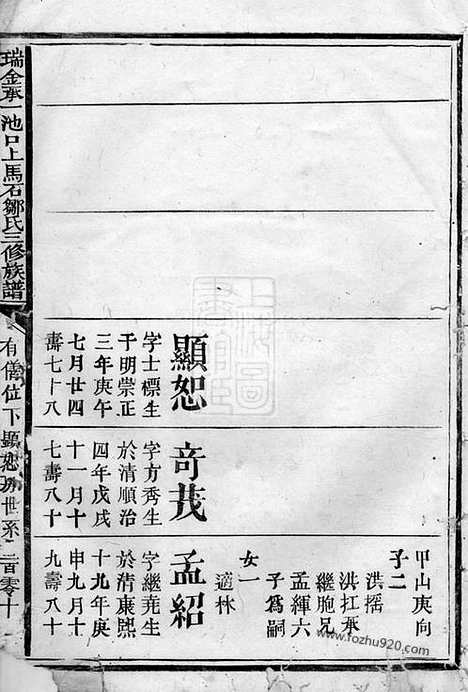 甲山庚向
子二
洪搖
洪扛承
繼胞兄
孟輝六
子爲嗣
女一
適林
顯恕
字士標生
于明崇正
三年庚午
七月廿四
壽七十八
奇茂
字方秀生
於清順治
四年戊戌
十一月十
七壽八十
孟紹
字繼堯生
於清康熙
十九年庚
申九月十
九壽八十
瑞金承一池口上馬石鄒氏三修族譜
有儀位下顯恕房世系
二百零十
www.fozhu920.com